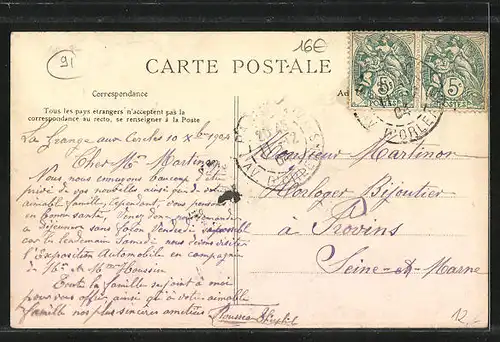 91
16€
CARTE POSTALE
Correspondance
Tous les pays étrangers n'acceptent pas la
correspondance au recto, se renseigner à la Poste
La Grange aux Cercles 10 Xbre 1904
Cher Mr Martinor
Nous nous ennuyons beaucoup d'être
privé de vos nouvelles ainsi que de votre
aimable famille, Cependant, vous pensons
en bonne santé, Venez donc
a Déjeuner sans façon Vendredi
car le lendemain Samedi nous devons visiter
l'Exposition Automobile en compagnie
de Mr et Mme Housseu
Toute la famille se joint à moi
pour vous offrir ainsi qu'à votre aimable
famille nos plus sincères amitiés
5c
POSTES
5c
POSTES
AV. D'ORLEANS
AV. D'ORLEANS
Monsieur Martinor
Horloger Bijoutier
à Provins
Seine-et-Marne
12,-